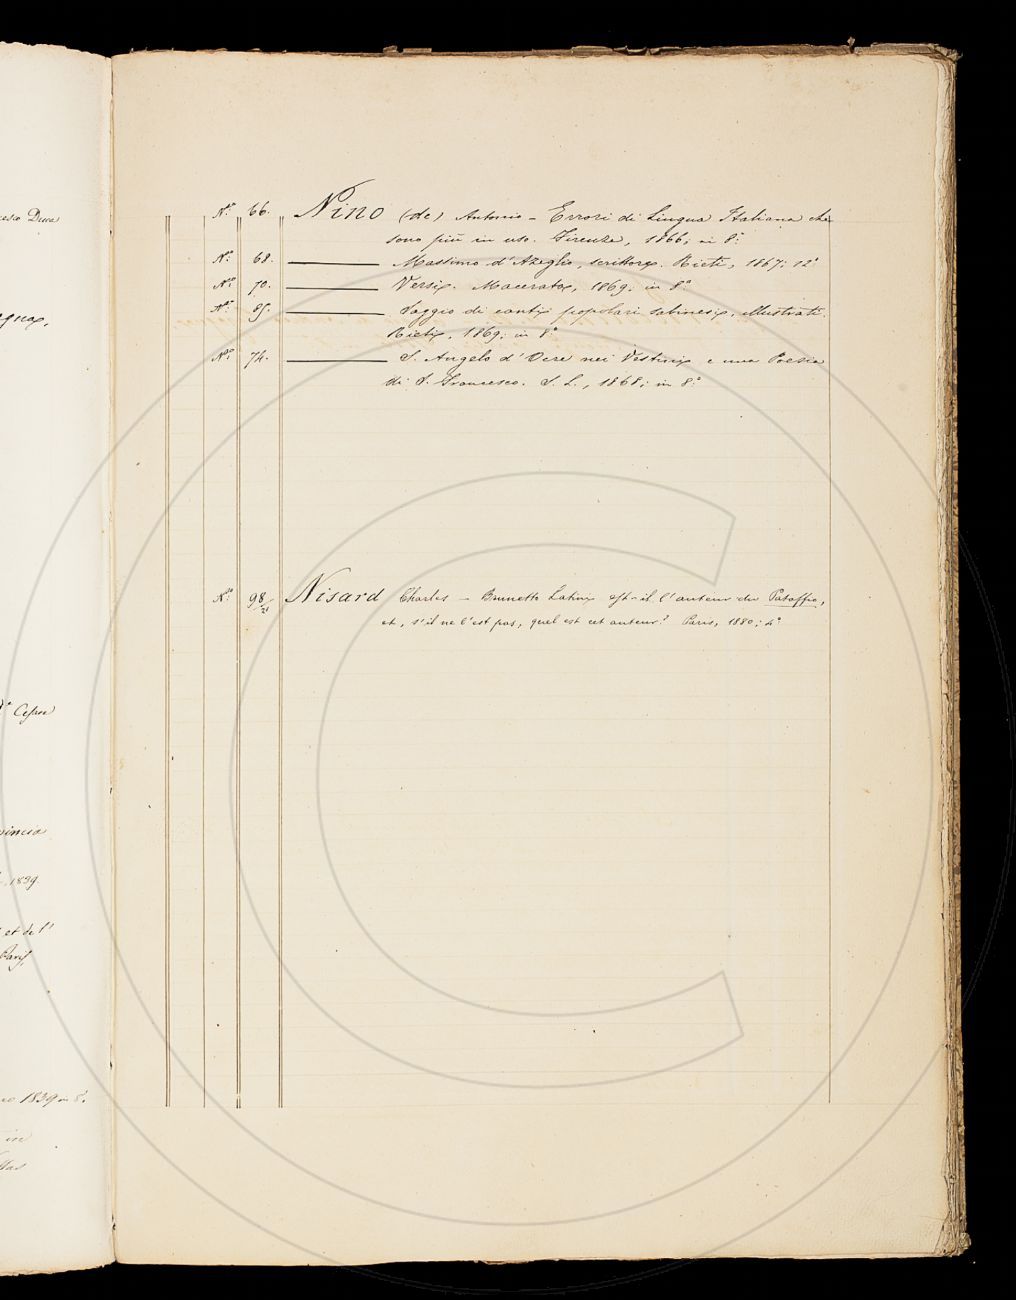 Duca
Cesare
vincia
, 1839.
et de l'
Paris,
1839 in 8.
in
N.º 66. Nino (de) Antonio – Errori di Lingua Italiana che
sono più in uso. Firenze, 1866; in 8.º
N.º 68. ——— Massimo d'Azeglio, scrittore. Rieti, 1867; 12º
N.º 70. ——— Versi. Macerata, 1869; in 8.º
N.º 85. ——— Saggio di canti popolari sabinesi, illustrati.
Rieti, 1869; in 8º
N.º 74. ——— S. Angelo d'Ocre nei Vestini e una Poesia
di S. Francesco. S. L., 1868; in 8.º
N.º 98/21 Nisard Charles – Brunetto Latini est-il l'auteur du Pataffio,
et, s'il ne l'est pas, quel est cet auteur? Paris, 1880; 4º